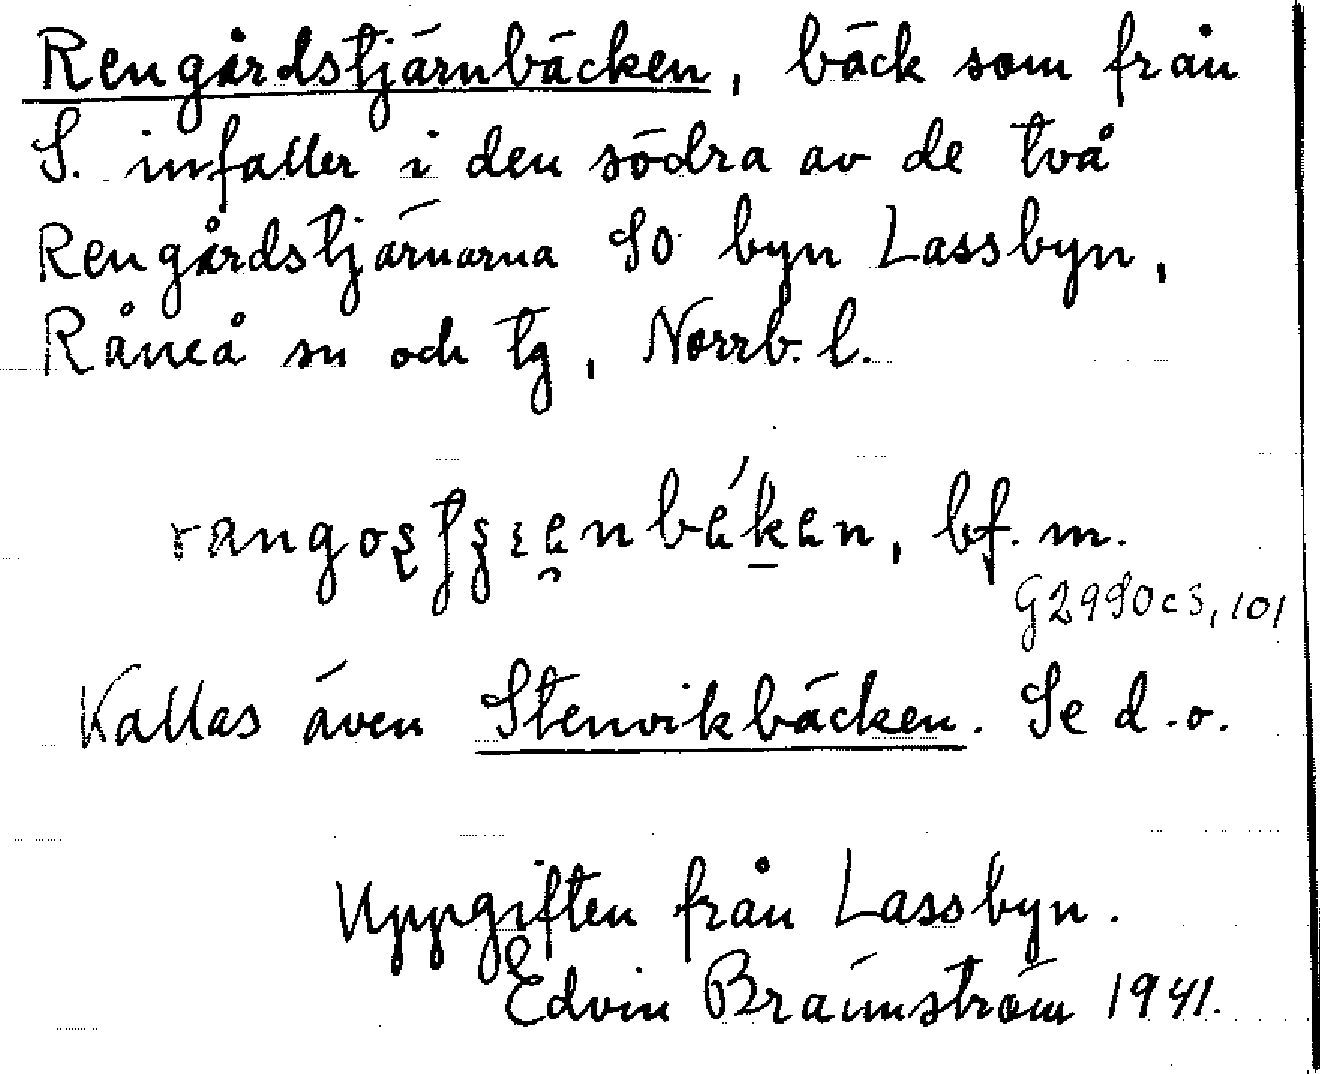 Rengårdstjärnbäcken, bäck som från
S. infaller i den södra av de två
Rengårdstjärnarna SO byn Lassbyn,
Råneå sn och tg, Norrb. l.
bf. m.
Kallas även Stenvikbäcken. Se d.o.
Uppgiften från Lassbyn.
Edvin Brännström 1941.